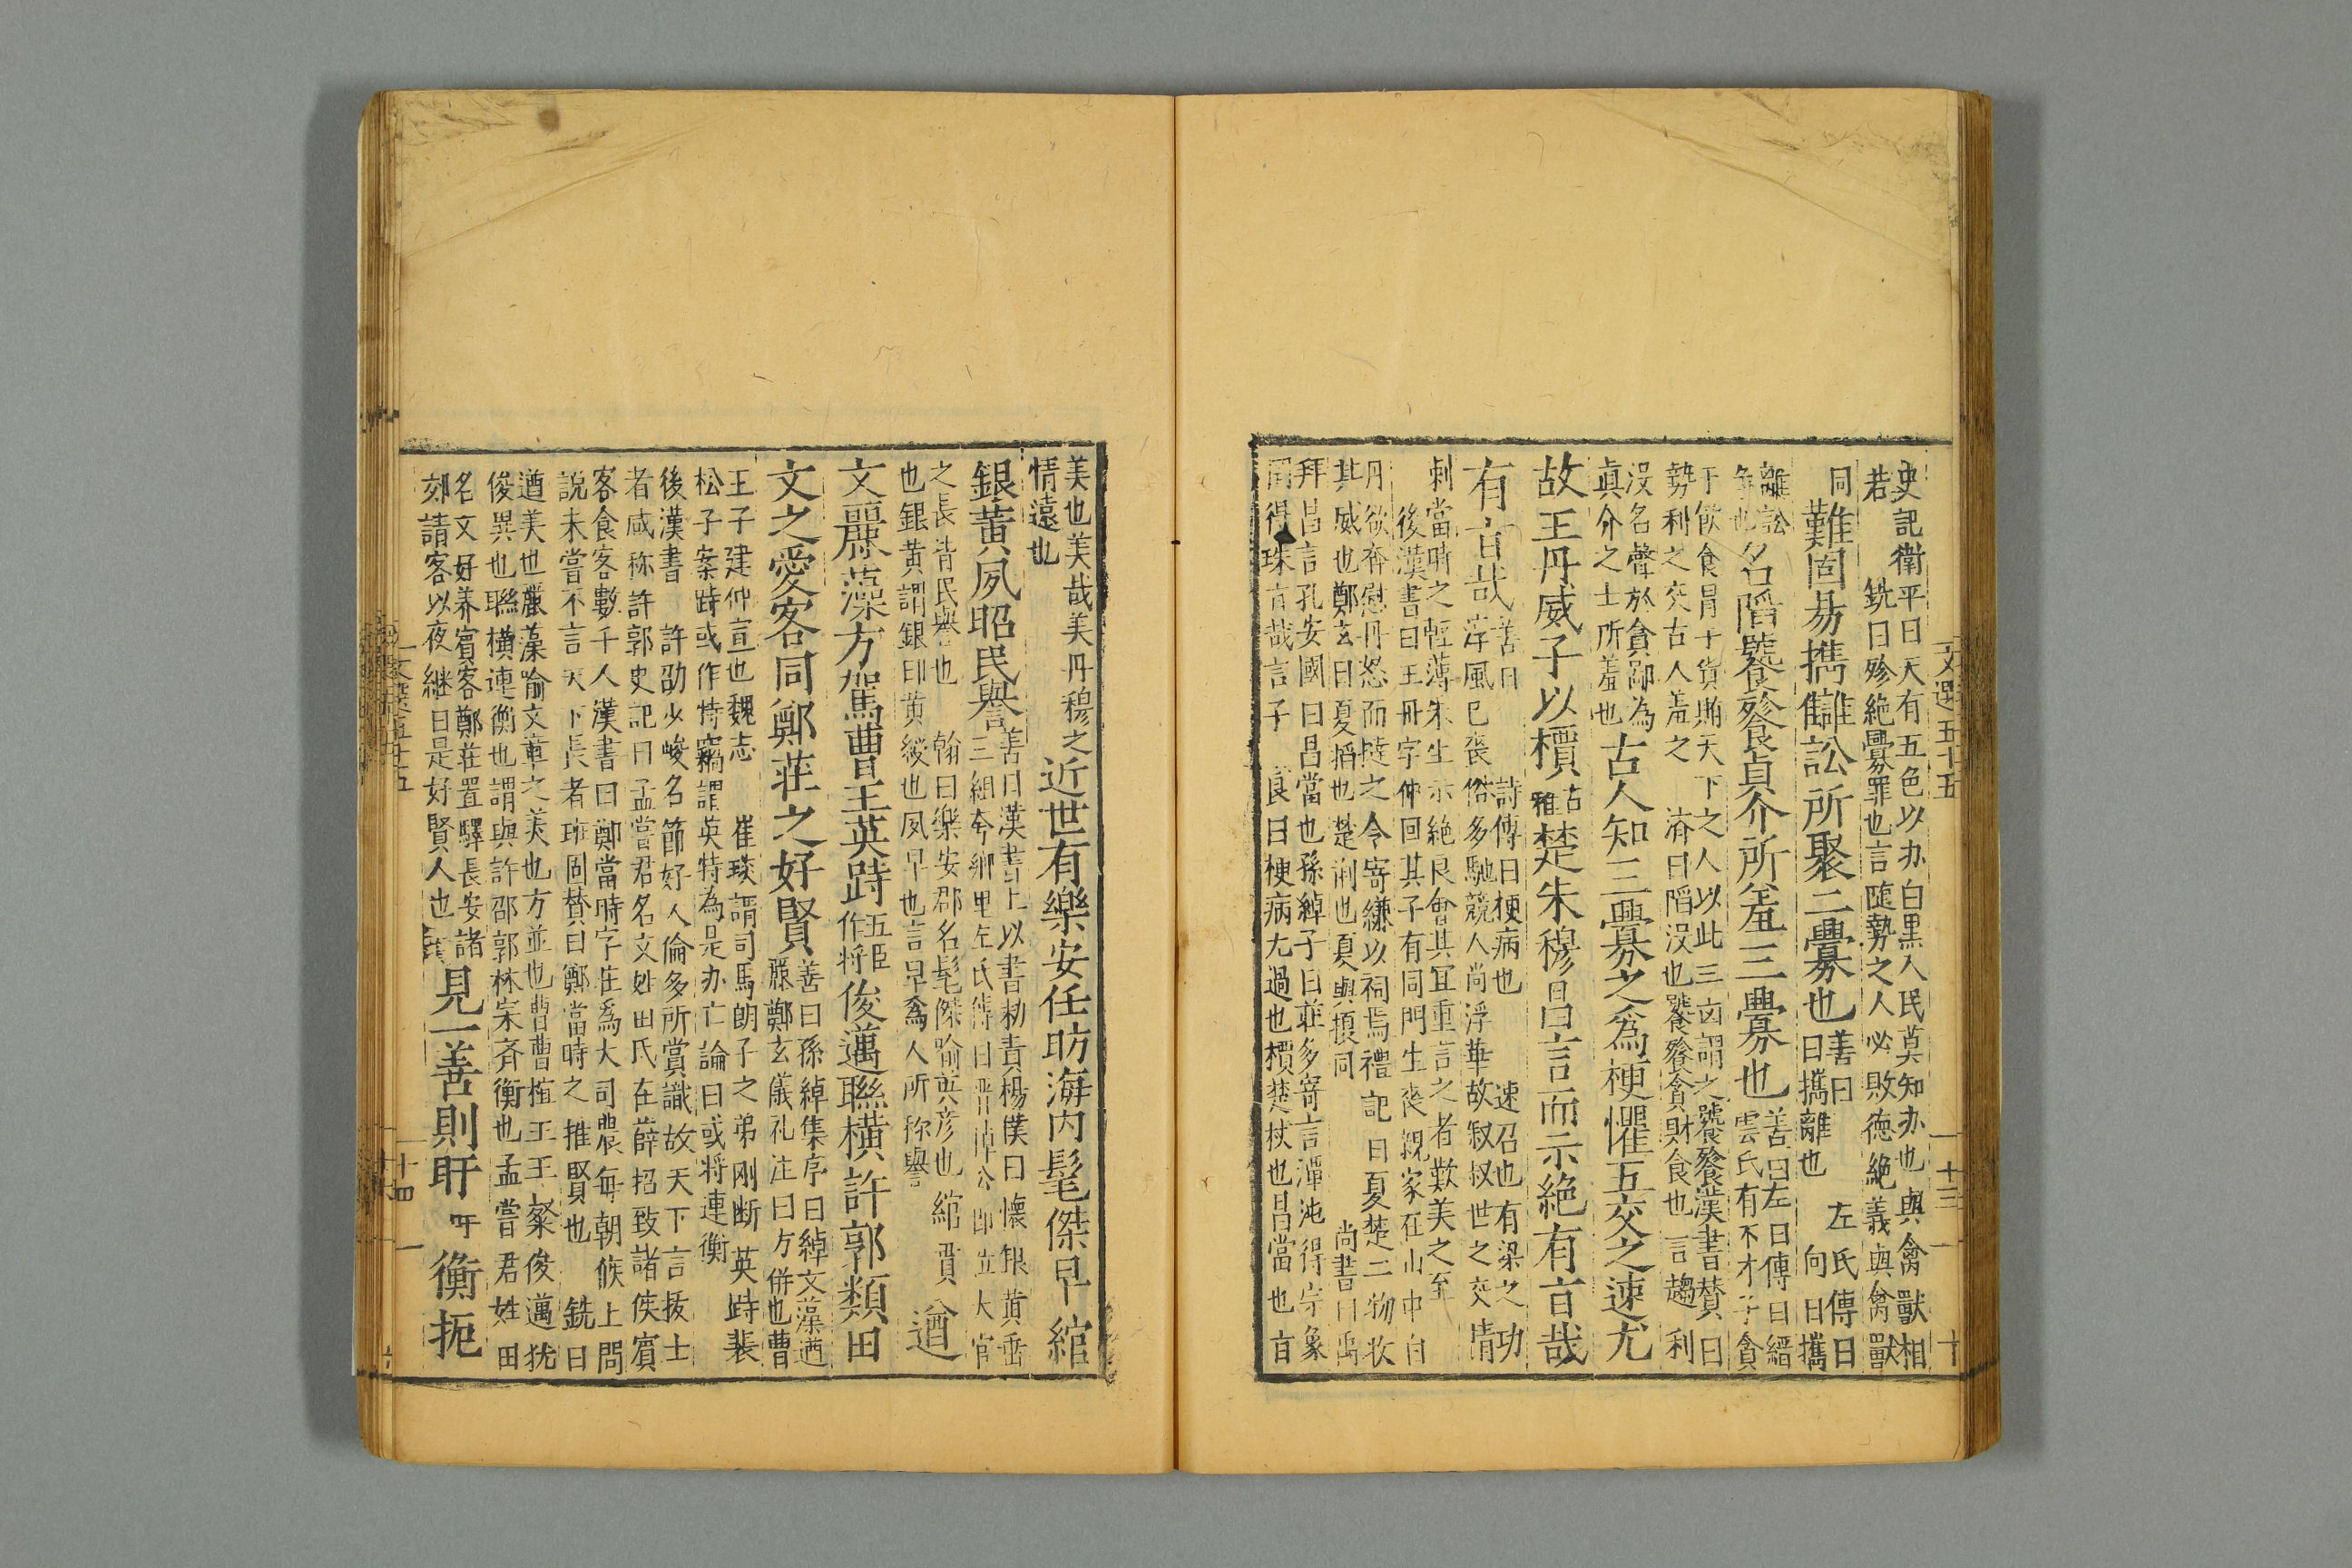 文選五十五
十三
史記衛平曰天有五色以办白黒人民莫知办也與禽獸相
若 銑曰殄絶釁罪也言隨勢之人必敗德絶義與禽獸
同難固易攜讎訟所聚二釁也善曰 左氏傳曰
曰攜離也 向曰攜
離訟
争也名陷饕餮貞介所羞三釁也善曰左曰傳曰縉
雲氏有不才子貪
于飲食冒于貨賄天下之人以此三凶謂之饕餮漢書賛曰
勢利之交古人羞之 濟曰陷没也饕餮貪財食也 言趨 利
没名聲於貪鄙為
眞介之士所羞也古人知三釁之爲梗懼五交之速尤
故王丹威子以檟古
雅楚朱穆昌言而示絶有旨哉
有旨哉善曰 詩傳曰梗病也 速召也有梁之功
淳風已丧俗多馳競人尚浮華故叙叔世之交情
刺當時之輕薄朱生示絶良會其宜重言之者歎美之至
後漢書曰王丹字仲回其子有同門生丧親家在山中白
丹欲奔慰丹怒而撻之令寄縑以祠焉禮記曰夏楚二物收
其威也鄭玄曰夏㨶也楚荊也夏與㯓同 尚書曰禹
拜昌言孔安國曰昌當也孫綽子曰莊多寄言渾沌得宗象
罔得珠旨哉言子 良曰梗病尤過也檟楚杖也昌當也 旨
美也美哉美丹穆之
情遠也近世有樂安任昉海内髦傑早綰
銀黄夙昭民譽善曰漢書上以書勑責楊僕曰懷銀黄垂
三組夸郷里左氏傳曰晋悼公即位大官
之長皆民譽也 翰曰樂安郡名髦傑喻英彦也 綰 貫
也銀黄謂銀印黄綬也夙早也言早為人所称譽遒
文麗藻方駕曹王英跱五臣
作特俊邁聯横許郭類田
文之愛客同鄭荘之好賢善曰孫綽集序曰綽文藻遒
麗鄭玄儀礼注曰方併也曹
王子建仲宣也魏志 崔琰謂司馬朗子之弟剛断 英跱裴
松子案跱或作特竊謂英特為是办亡論曰或将連衡
後漢書 許劭少峻名節好人倫多所賞識故天下言拔士
者咸称許郭史記曰孟嘗君名文姓田氏在薛招致諸侯賔
客食客數千人漢書曰鄭當時字荘為大司農每朝候上問
説未嘗不言天下長者班固賛曰鄭當時之推賢也 銑曰
遒美也麗藻喻文章之美也方並也曹曹植王王粲俊邁犹
俊異也聯横連衡也謂與許邵郭林宗斉衡也孟嘗君姓田
名文好养賓客鄭荘置驛長安諸
郊請客以夜継日是好賢人也見一善則盱 吁 衡扼
文選五十五
十四